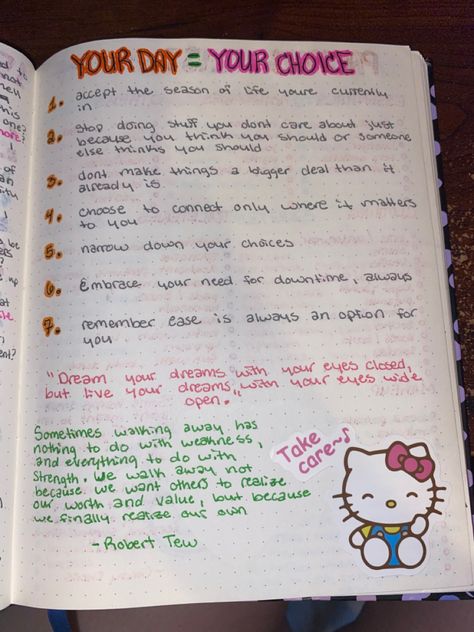 YOUR DAY = YOUR CHOICE
1. accept the season of life youre currently
in
2. stop doing stuff you dont care about just
because you think you should or someone
else thinks you should
3. dont make things a bigger deal than it
already is
4. choose to connect only where it matters
to you
5. narrow down your choices
6. Embrace your need for downtime, always
7. remember ease is always an option for
you
"Dream your dreams with your eyes closed,
but live your dreams with your eyes wide
open."
Sometimes walking away has
nothing to do with weakness,
and everything to do with
strength. We walk away not
because we want others to realize
our worth and value, but because
we finally realize our own
- Robert Tew
Take
care~♪